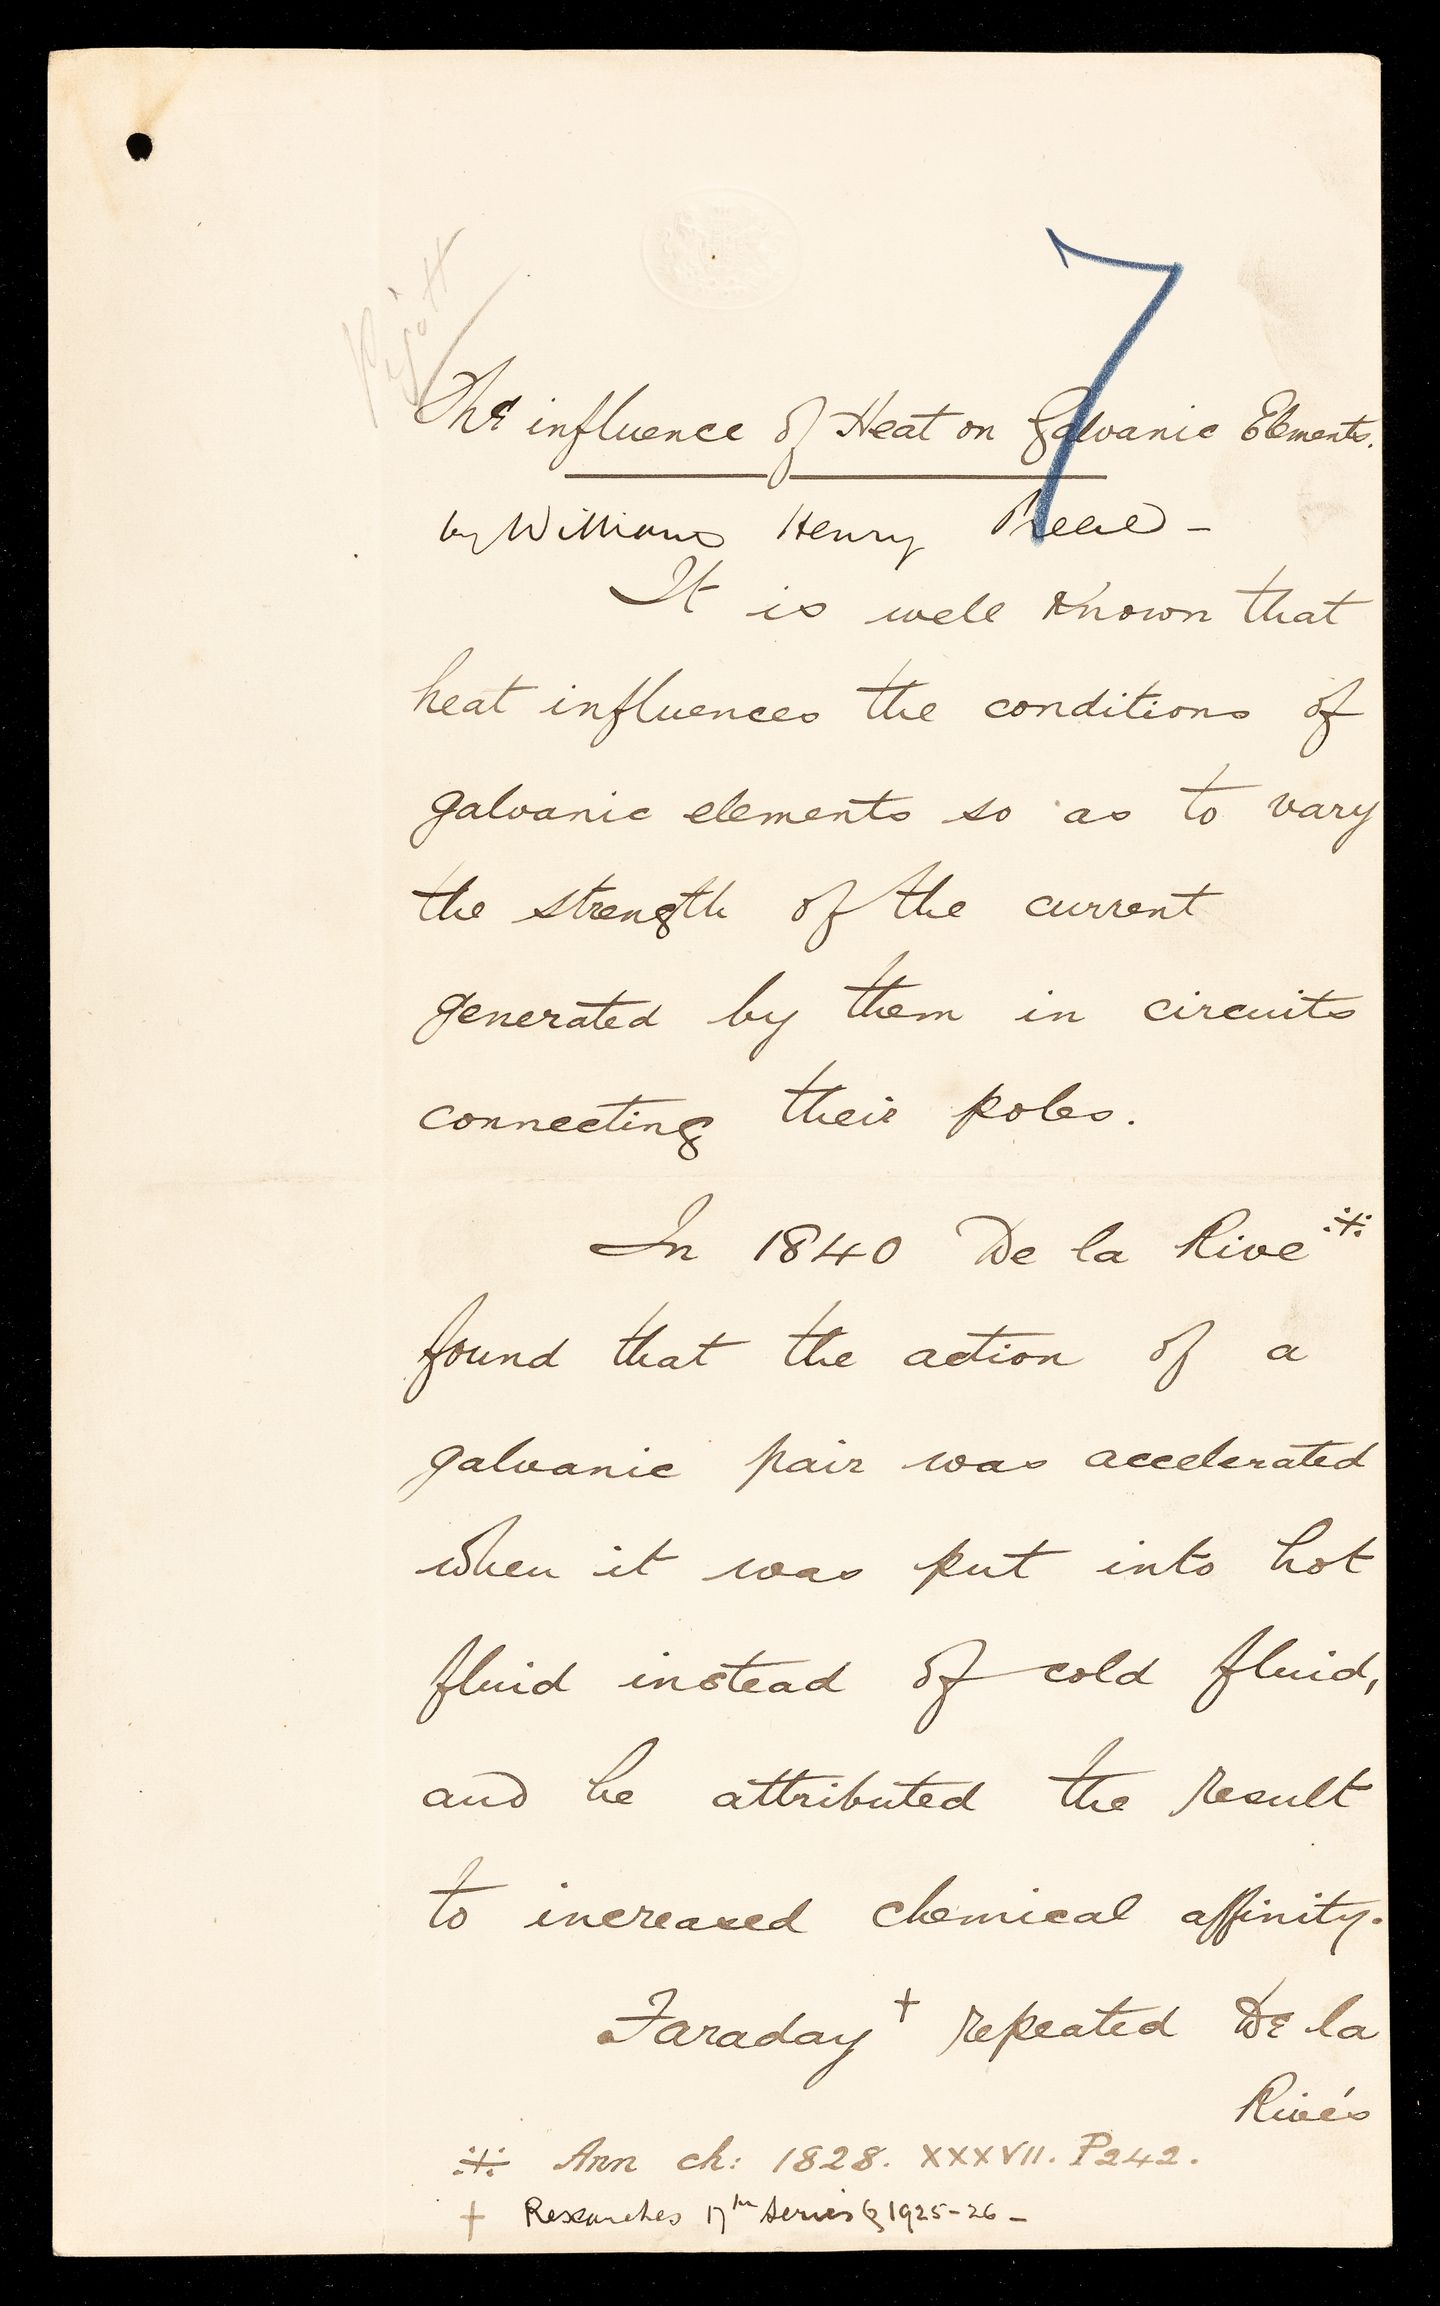 Pigott
7
The influence of Heat on Galvanic Elements.
by William Henry Preece –
It is well known that
heat influences the conditions of
galvanic elements so as to vary
the strength of the current
generated by them in circuits
connecting their poles.
In 1840 De la Rive ※
found that the action of a
galvanic pair was accelerated
when it was put into hot
fluid instead of cold fluid,
and he attributed the result
to increased chemical affinity.
Faraday † repeated De la
Rive's
※ Ann ch: 1828. XXXVII. P242.
† Researches 17th Series § 1925-26 –